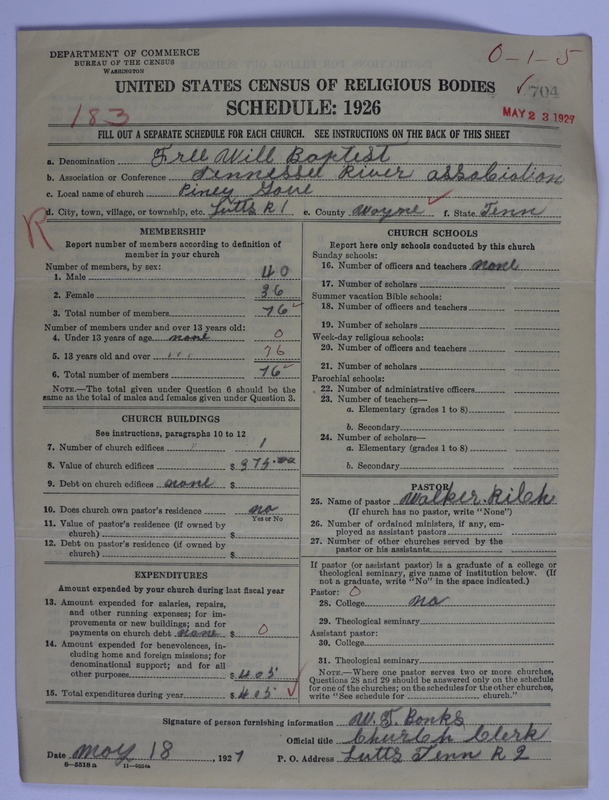 DEPARTMENT OF COMMERCE
BUREAU OF THE CENSUS
WASHINGTON
0-1-5
UNITED STATES CENSUS OF RELIGIOUS BODIES
704
SCHEDULE: 1926
183
MAY 23 1927
FILL OUT A SEPARATE SCHEDULE FOR EACH CHURCH. SEE INSTRUCTIONS ON THE BACK OF THIS SHEET
a. Denomination Free Will Baptist
b. Association or Conference Tennessee River association
c. Local name of church Piney Gove
R
d. City, town, village, or township, etc. Lutts R 1 e. County Wayne f. State Tenn
MEMBERSHIP
Report number of members according to definition of
member in your church
Number of members, by sex:
1. Male 40
2. Female 36
3. Total number of members 76
Number of members under and over 13 years old:
4. Under 13 years of age none 0
5. 13 years old and over 76
6. Total number of members 76
NOTE.—The total given under Question 6 should be the
same as the total of males and females given under Question 3.
CHURCH BUILDINGS
See instructions, paragraphs 10 to 12
7. Number of church edifices 1
8. Value of church edifices $ 375.00
9. Debt on church edifices none $
10. Does church own pastor's residence no
Yes or No
11. Value of pastor's residence (if owned by
church) $
12. Debt on pastor's residence (if owned by
church) $
EXPENDITURES
Amount expended by your church during last fiscal year
13. Amount expended for salaries, repairs,
and other running expenses; for im-
provements or new buildings; and for
payments on church debt none $ 0
14. Amount expended for benevolences, in-
cluding home and foreign missions; for
denominational support; and for all
other purposes $ 4.05
15. Total expenditures during year $ 4.05
CHURCH SCHOOLS
Report here only schools conducted by this church
Sunday schools:
16. Number of officers and teachers none
17. Number of scholars
Summer vacation Bible schools:
18. Number of officers and teachers
19. Number of scholars
Week-day religious schools:
20. Number of officers and teachers
21. Number of scholars
Parochial schools:
22. Number of administrative officers
23. Number of teachers—
a. Elementary (grades 1 to 8)
b. Secondary
24. Number of scholars—
a. Elementary (grades 1 to 8)
b. Secondary
PASTOR
25. Name of pastor Walker Rilch
(If church has no pastor, write "None")
26. Number of ordained ministers, if any, em-
ployed as assistant pastors
27. Number of other churches served by the
pastor or his assistants
If pastor (or assistant pastor) is a graduate of a college or
theological seminary, give name of institution below. (If
not a graduate, write "No" in the space indicated.)
Pastor: 0
28. College no
29. Theological seminary
Assistant pastor:
30. College
31. Theological seminary
NOTE.—Where one pastor serves two or more churches,
Questions 28 and 29 should be answered only on the schedule
for one of the churches; on the schedules for the other churches,
write "See schedule for church."
Signature of person furnishing information W. T. Bonks
Official title Church Clerk
Date May 18, 1927 P. O. Address Lutts Tenn R 2
8-5518 a